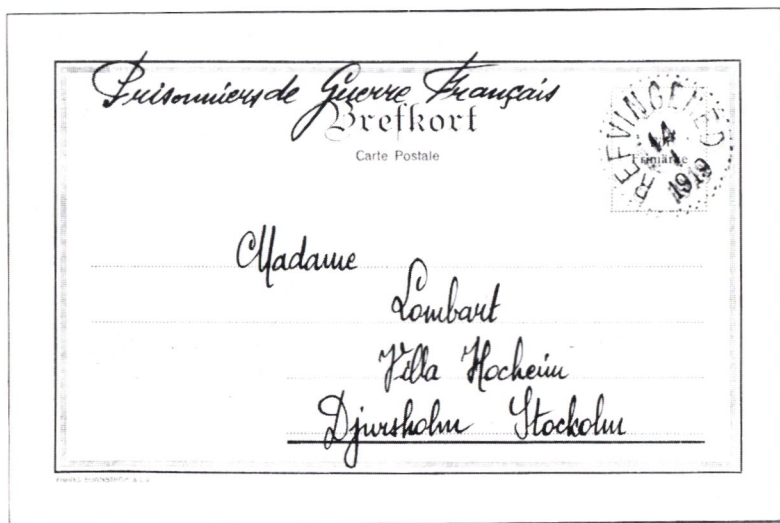 Prisonniers de Guerre Français
Brefkort
Carte Postale
REFVINGEHED
14
1
1919
Frimärke
Madame
Lombart
Villa Hocheim
Djursholm Stockolm